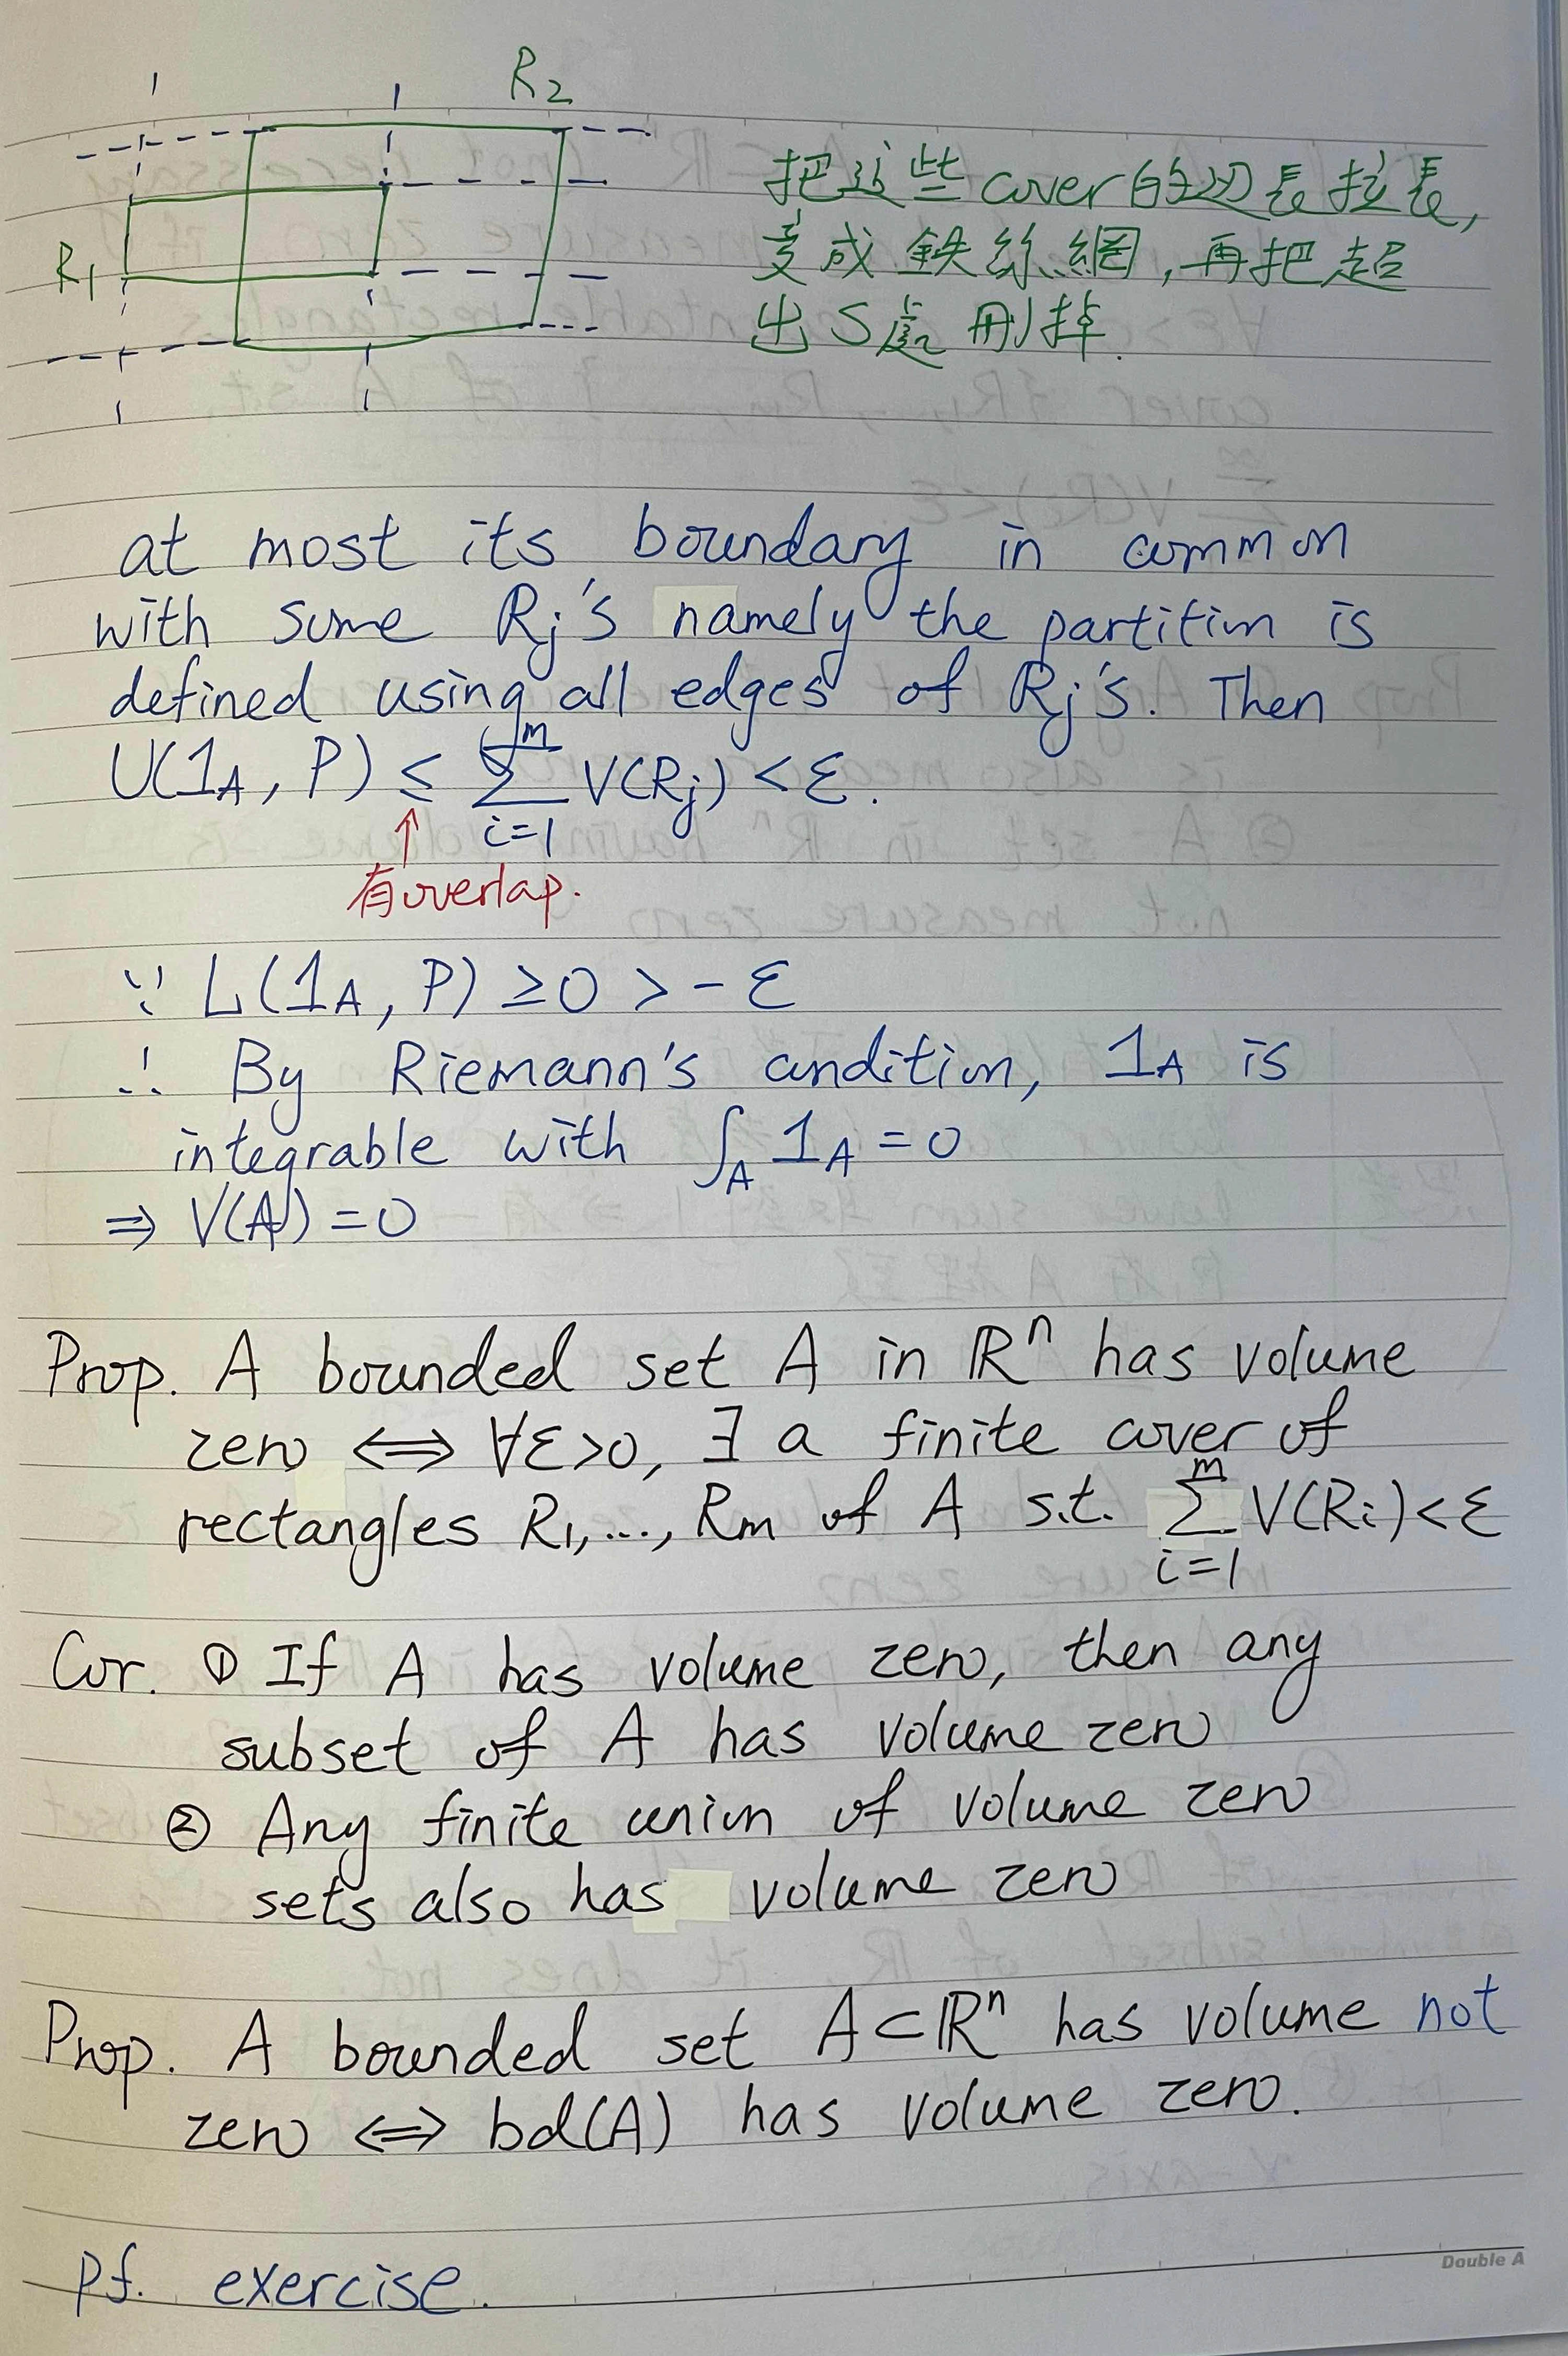 R2
R1
把這些cover的边長拉長,
变成鉄絲網,再把超
出S處刪掉.
at most its boundary in common
with some Rj's namely the partition is
defined using all edges of Rj's. Then
U(1_A, P) ≤ ∑_{i=1}^{m} V(Rj) < ε.
↑
有overlap.
∵ L(1_A, P) ≥ 0 > -ε
∴ By Riemann's condition, 1_A is
integrable with ∫_A 1_A = 0
⇒ V(A) = 0
Prop. A bounded set A in ℝⁿ has volume
zero ⟺ ∀ε>0, ∃ a finite cover of
rectangles R1, ..., Rm of A s.t. ∑_{i=1}^{m} V(Ri) < ε
Cor. ① If A has volume zero, then any
subset of A has volume zero
② Any finite union of volume zero
sets also has volume zero
Prop. A bounded set A⊂ℝⁿ has volume not
zero ⟺ bd(A) has volume zero.
pf. exercise.
Double A